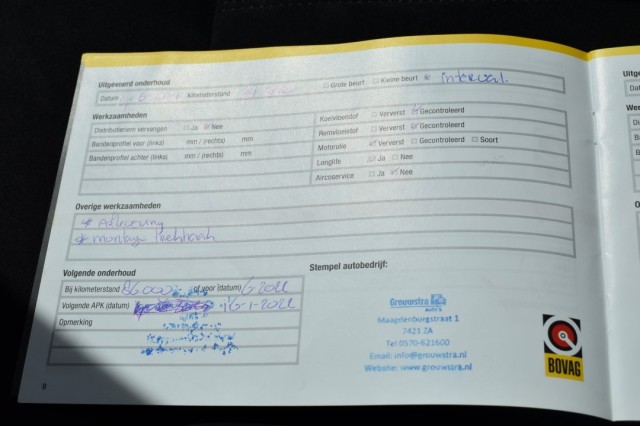 Uitgevoerd onderhoud
Datum Kilometerstand Grote beurt Kleine beurt interval
Werkzaamheden
Distributieriem vervangen Ja Nee
Bandenprofiel voor (links) mm / (rechts) mm
Bandenprofiel achter (links) mm / (rechts) mm
Koelvloeistof Ververst Gecontroleerd
Remvloeistof Ververst Gecontroleerd
Motorolie Ververst Gecontroleerd Soort
Longlife Ja Nee
Aircoservice Ja Nee
Overige werkzaamheden
* Aflevering
* montage trekhaak
Volgende onderhoud
Bij kilometerstand of voor (datum)
Volgende APK (datum)
Opmerking
Stempel autobedrijf:
Grouwstra
auto's
Maagdenburgstraat 1
7421 ZA
Tel 0570-621600
Email: info@grouwstra.nl
Website: www.grouwstra.nl
BOVAG
8